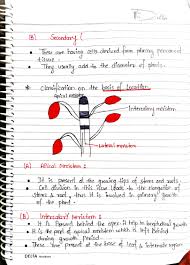 Delta
(B) Secondary :
• They are having cells derived from primary permanent
tissue.
• They usually add to the diameter of plants.
* Classification on the basis of location
Apical meristem
Intercalary meristem
Lateral meristem
(A) Apical meristem :
• It is present at the growing tips of stems and roots.
• Cell division in this view leads to the elongation of
stem & root, thus it is involved in primary growth
of the plant.
(B) Intercalary meristem :
• It is Present behind the apex. It help in longitudinal growth
• It is the part of apical meristem which is left behind
during growth period.
• These are present at the base of leaf & internode region
DELTA